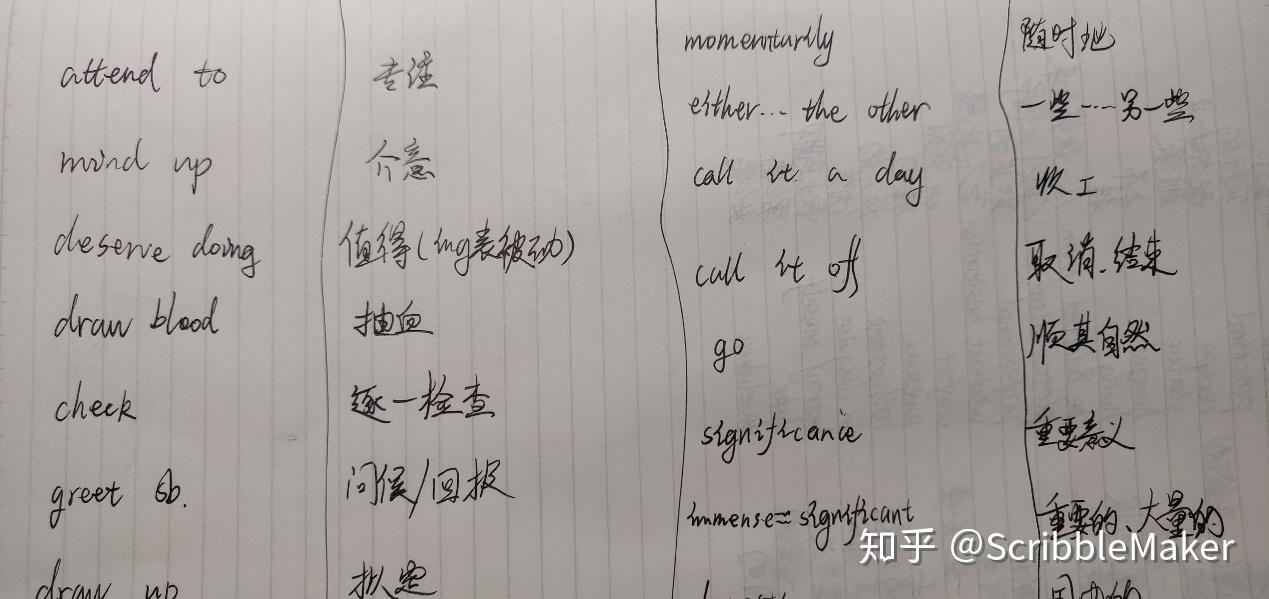 attend to 专注
mind up 介意
deserve doing 值得(ing表被动)
draw blood 抽血
check 逐一检查
greet sb. 问候/回报
draw up 拟定
momenturily 随时地
either... the other 一些……另一些
call it a day 收工
call it off 取消、结束
go 顺其自然
significance 重要意义
immense=significant 重要的、大量的
知乎 @ScribbleMaker